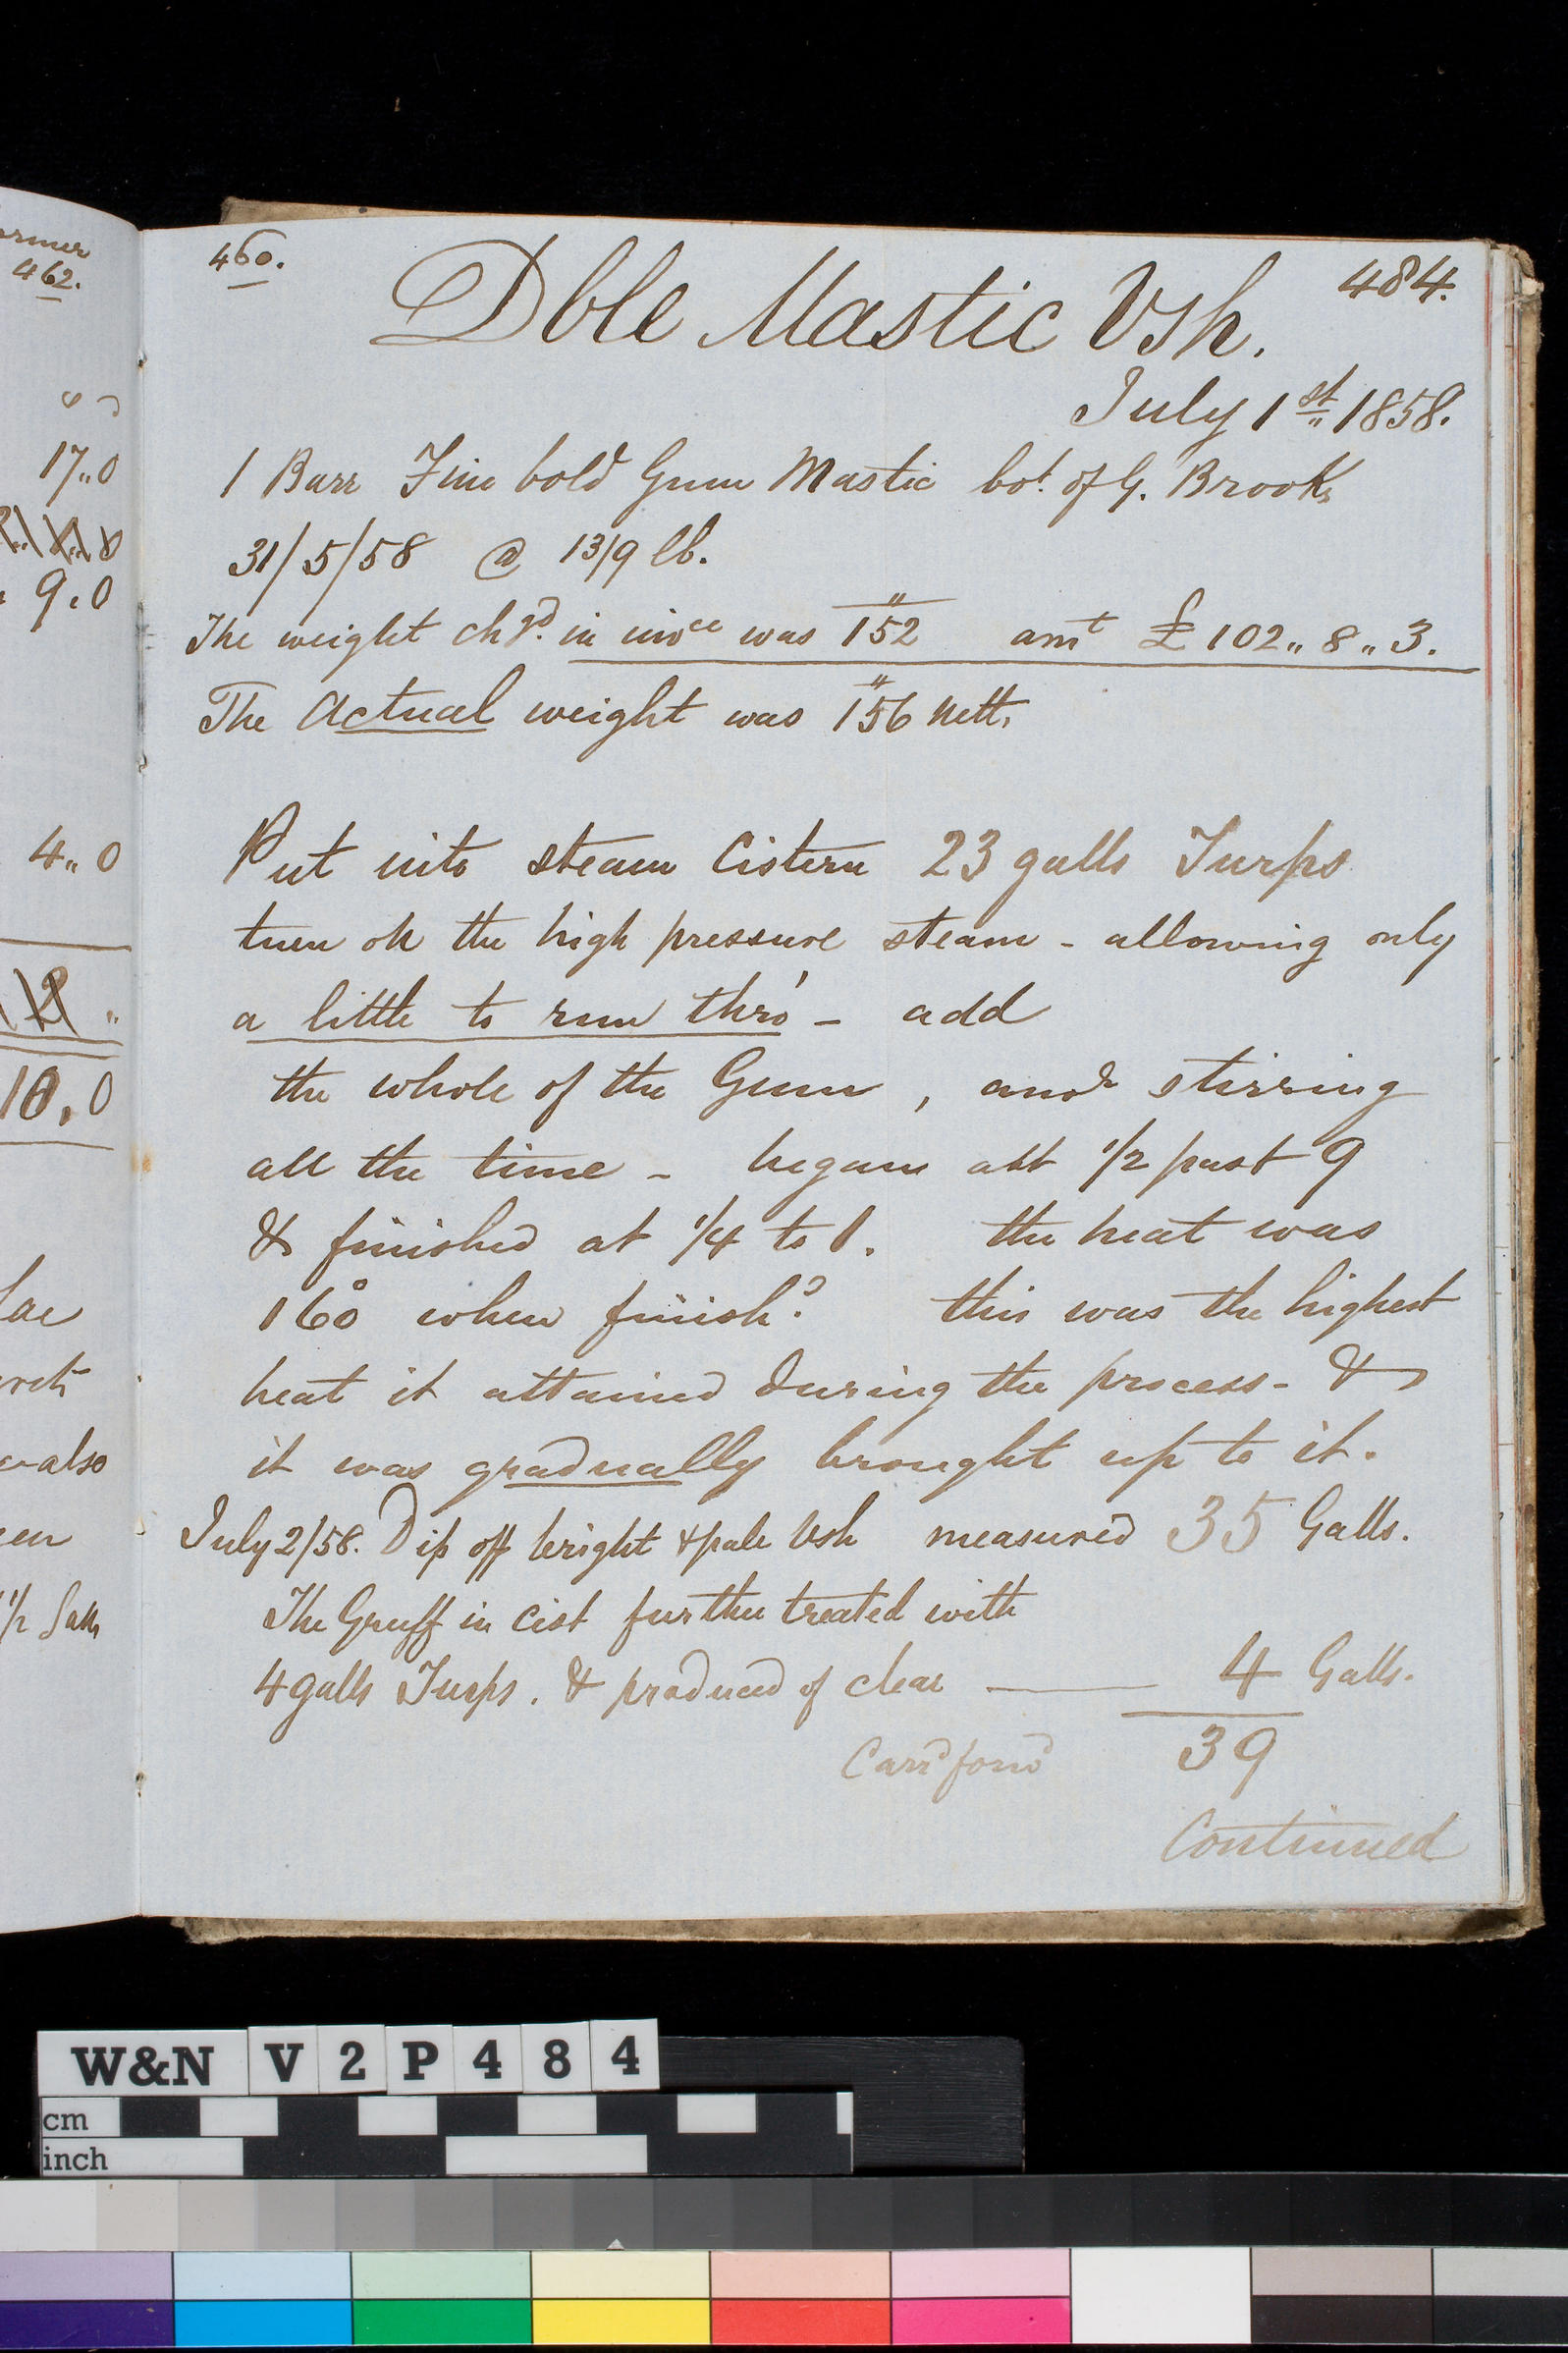 462.
17,,0
9,0
4,,0
10,0
also
460.
484.
Dble Mastic Vsh.
July 1st 1858.
1 Barr Fine bold Gum Mastic bot. of G. Brooks
31/5/58 @ 13/9 lb.
The weight chgd. in invce was 152 amt £102,,8,,3.
The Actual weight was 156 Nett,
Put into steam Cistern 23 galls Turps
turn on the high pressure steam - allowing only
a little to run thro' - add
the whole of the Gum, and stirring
all the time - began abt 1/2 past 9
& finished at 1/4 to 1. the heat was
160° when finishd. this was the highest
heat it attained during the process - &
it was gradually brought up to it.
July 2/58. Dip off bright & pale Vsh measured 35 Galls.
The Gruff in cist further treated with
4 galls Turps. & produced of clear — 4 Galls.
Carrd forwd 39
Continued
W&N V 2 P 4 8 4
cm
inch